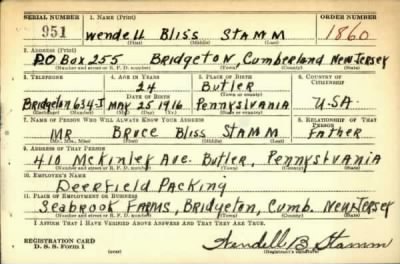 SERIAL NUMBER 1. NAME (Print) ORDER NUMBER
951 Wendell Bliss Stamm 1860
(First) (Middle) (Last)
2. ADDRESS (Print)
P.O Box 255 Bridgeton, Cumberland New Jersey
(Number and street or R. F. D. number) (Town) (County) (State)
3. TELEPHONE 4. AGE IN YEARS 5. PLACE OF BIRTH 6. COUNTRY OF CITIZENSHIP
24 Butler
DATE OF BIRTH (Town or county)
Bridgeton 634-J May 25 1916 Pennsylvania U.S.A.
(Exchange) (Number) (Mo.) (Day) (Yr.) (State or country)
7. NAME OF PERSON WHO WILL ALWAYS KNOW YOUR ADDRESS 8. RELATIONSHIP OF THAT PERSON
Mr Bruce Bliss Stamm Father
(Mr., Mrs., Miss) (First) (Middle) (Last)
9. ADDRESS OF THAT PERSON
410 McKinley Ave. Butler, Pennsylvania
(Number and street or R. F. D. number) (Town) (County) (State)
10. EMPLOYER'S NAME
Deerfield Packing
11. PLACE OF EMPLOYMENT OR BUSINESS
Seabrook Farms, Bridgeton, Cumb. New Jersey
(Number and street or R. F. D. number) (Town) (County) (State)
I AFFIRM THAT I HAVE VERIFIED ABOVE ANSWERS AND THAT THEY ARE TRUE.
REGISTRATION CARD
D. S. S. Form 1
Wendell B. Stamm